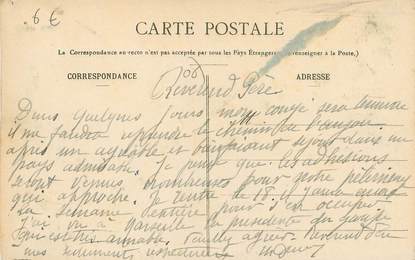 6 €
CARTE POSTALE
La Correspondance au recto n'est pas acceptée par tous les Pays Étrangers (Se renseigner à la Poste.)
CORRESPONDANCE
ADRESSE
06
Révérend Père
Dans quelques jours mon congé sera terminé
il me faudra reprendre le chemin de
après un agréable et bienfaisant séjour dans un
pays admirable. Je pense que les adhésions
seront venues nombreuses pour notre pelerinage
qui approche. Je rentre le 18. J'aurai
la semaine entière pour m'en occuper
J'ai vu à Marseille la présidente du Groupe
qui est très aimable. Veuillez agréer Révérend Père
mes sentiments respectueux